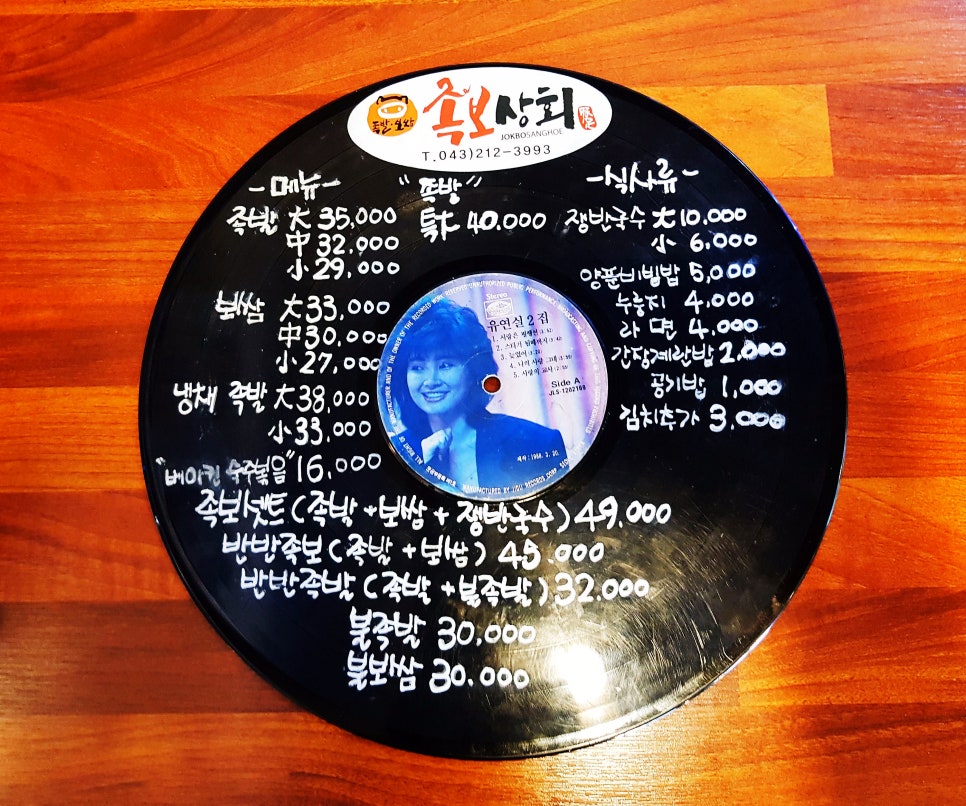 족발·보쌈
족보상회
JOKBOSANGHOE
T.043)212-3993
-메뉴-
족발 大 35,000
中 32,000
小 29,000
보쌈 大 33,000
中 30,000
小 27,000
냉채 족발 大 38,000
小 33,000
"베이컨 숙주볶음" 16,000
"족방"
特大 40.000
-식사류-
쟁반국수 大 10,000
小 6,000
양푼비빔밥 5,000
누룽지 4,000
라면 4,000
간장계란밥 2,000
공기밥 1,000
김치추가 3,000
족보셋트(족발+보쌈+쟁반국수) 49,000
반반족보(족발+보쌈) 45.000
반반족발(족발+불족발) 32.000
불족발 30,000
불보쌈 30.000
Stereo
유연실 2 집
5. 사랑의 교사
Side A
JLS-1202188